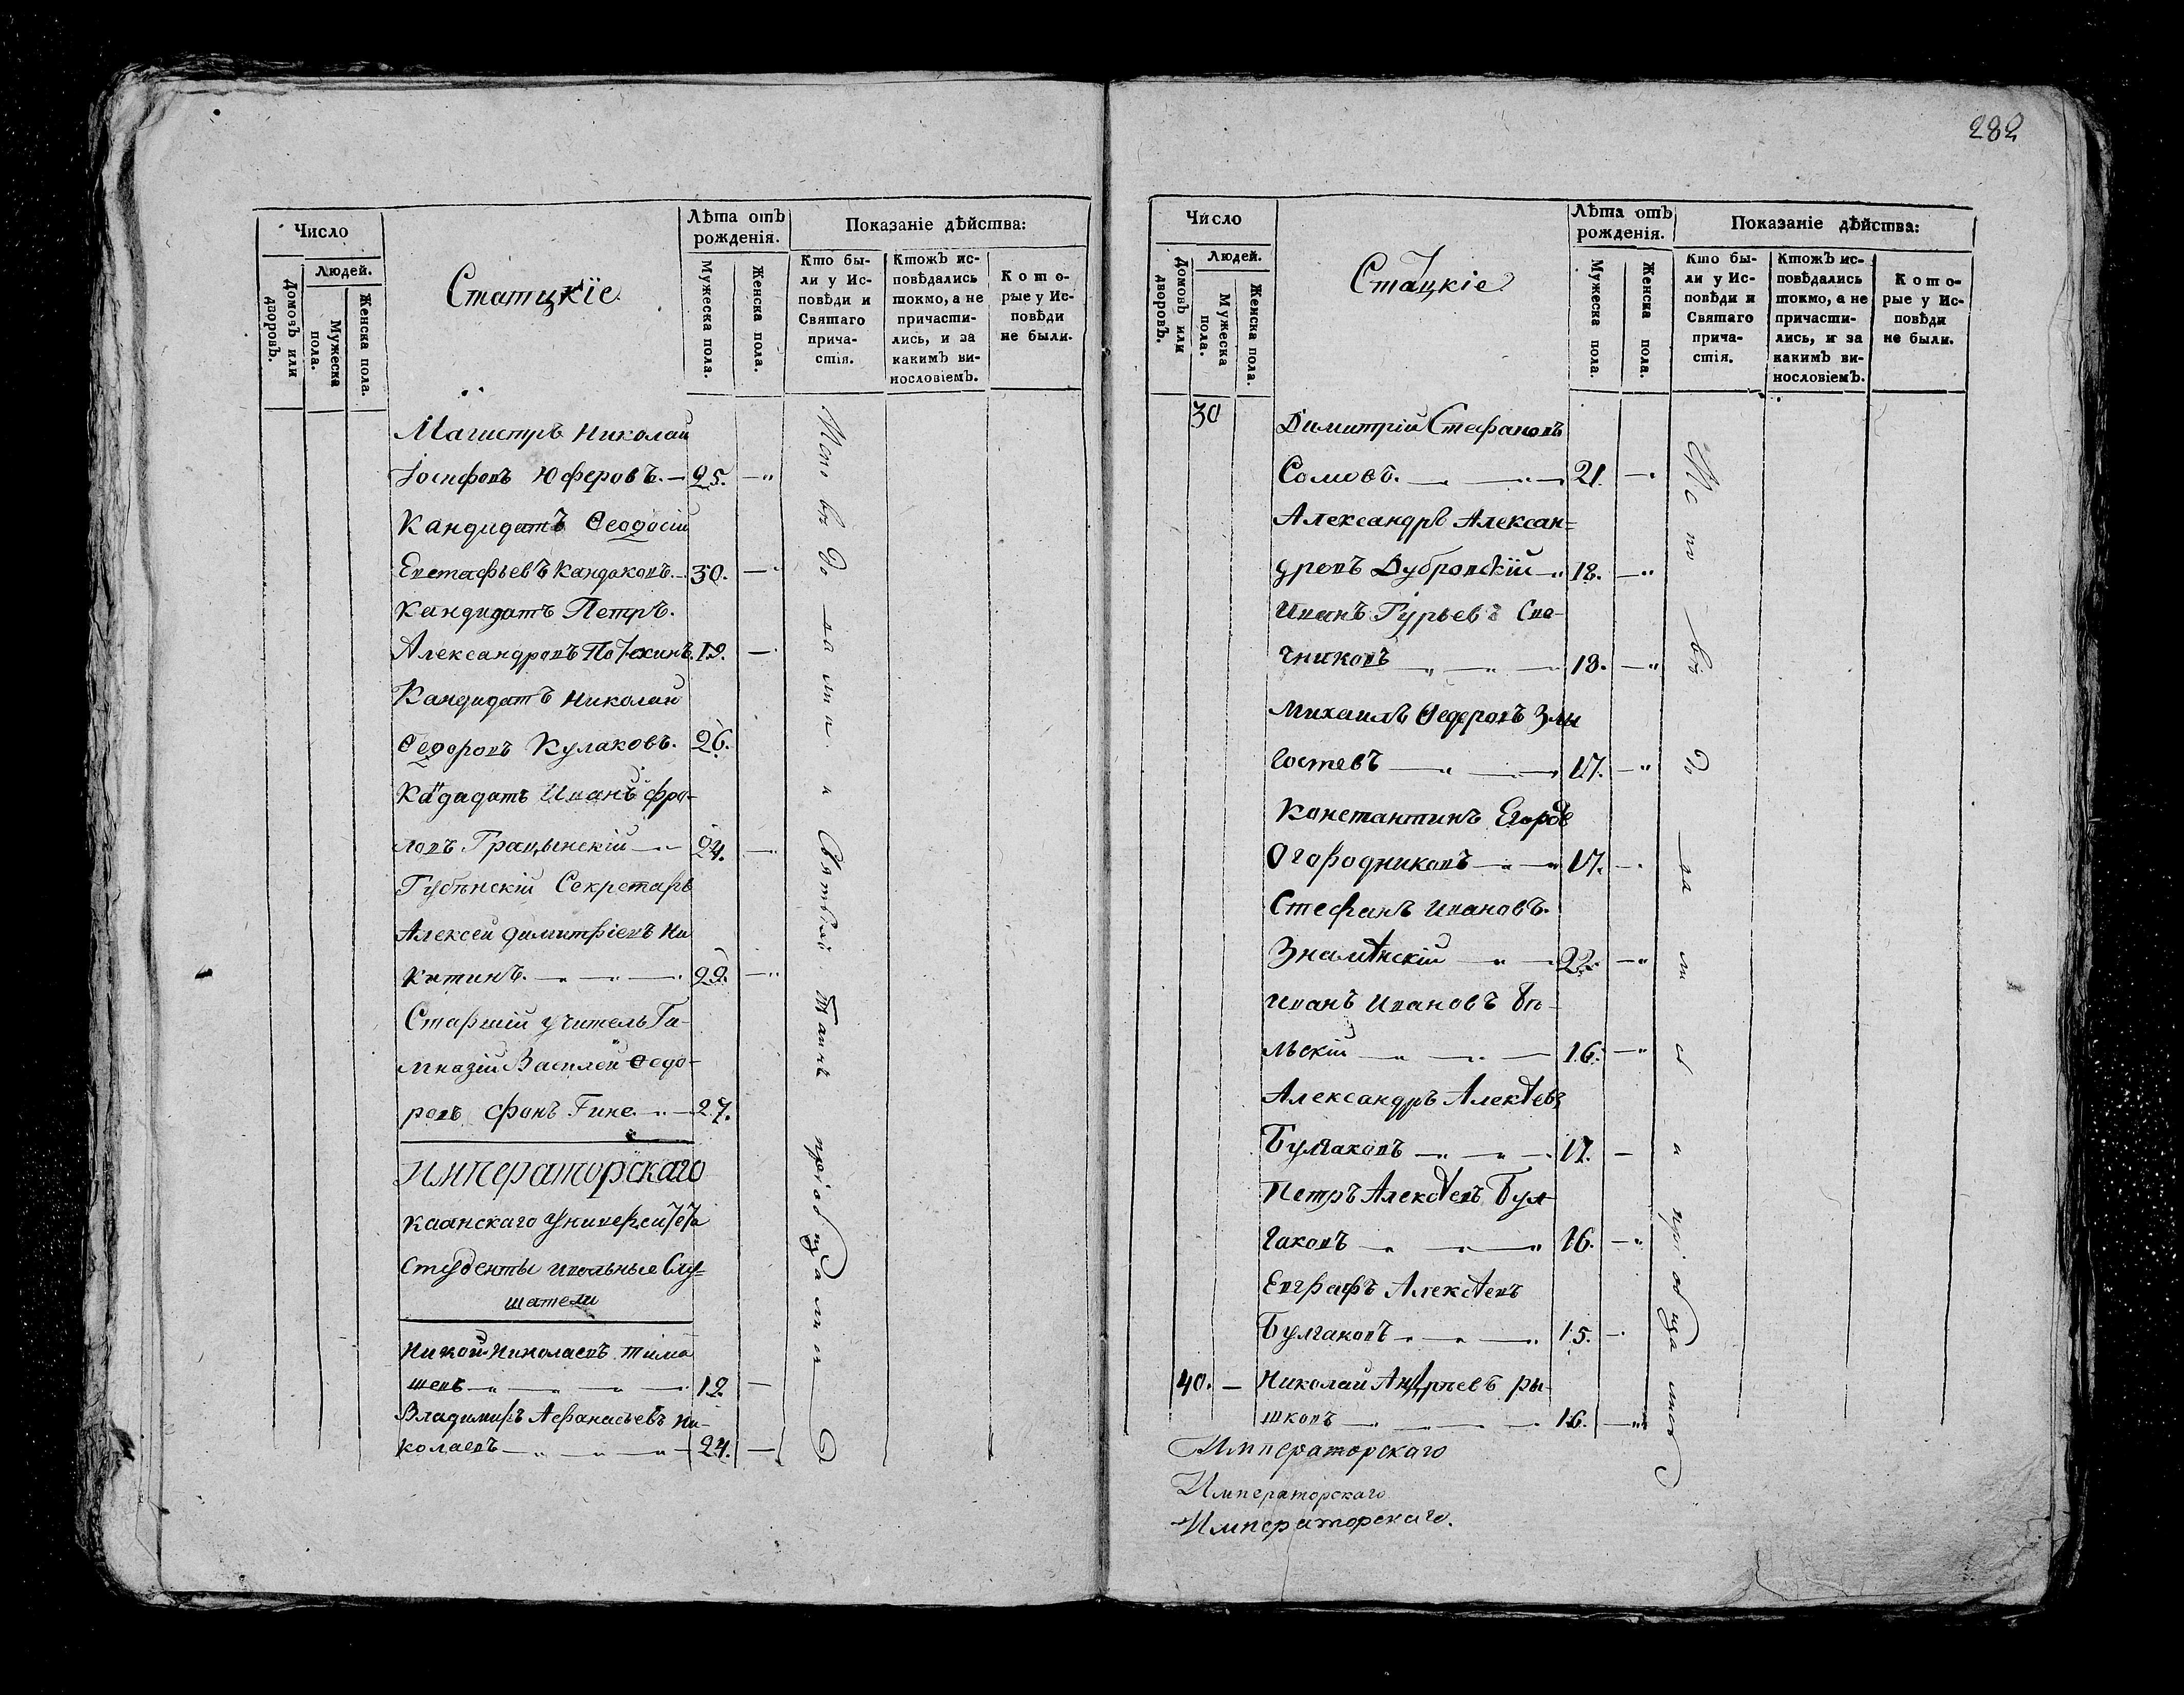 282
Число
Людей.
Домовъ или дворовъ.
Мужеска пола.
Женска пола.
Статцкіе.
Лѣта отъ рожденія.
Мужеска пола.
Женска пола.
Показаніе дѣйства:
Кто бы-
ли у Ис-
повѣди и
Святаго
прича-
стія.
Ктожъ ис-
повѣдались
токмо, а не
причасти-
лись, и за
какимъ ви-
нословіемъ.
Кото-
рые у Ис-
повѣди
не были.
Магистръ Николай
Іосифовъ Юферовъ. — 25. — „
Кандидатъ Ѳеодосій
Евстафьевъ Кандаковъ. — 30. —
Кандидатъ Петръ.
Александровъ Потехинъ. 19. —
Кандидатъ Николай
Ѳедоровъ Кулаковъ. 26.
Кандидатъ Иванъ Фро-
ловъ Грацынскій — 24. —
Губѣнскій Секретарь
Алексей Димитріевъ Ни
китинъ. — „ — „ — 29. — „
Старшій учитель Ги-
мназіи Василей Ѳедо-
ровъ фонъ Гине. — „ — 27.
Императорскаго
Казанскаго Университета
Студенты и вольные Слу-
шатели
Николай Николаевъ Тима
шевъ — „ — „ — 12. —
Владимиръ Афанасьевъ Ни-
колаевъ — „ — „ — 24. —
Исповѣдались и Святыхъ Таинъ пріобщались
Число
Людей.
Домовъ или дворовъ.
Мужеска пола.
Женска пола.
Стацкіе
Лѣта отъ рожденія.
Мужеска пола.
Женска пола.
Показаніе дѣйства:
Кто бы-
ли у Ис-
повѣди и
Святаго
прича-
стія.
Ктожъ ис-
повѣдались
токмо, а не
причасти-
лись, и за
какимъ ви-
нословіемъ.
Кото-
рые у Ис-
повѣди
не были.
30 Димитрій Стефановъ
Сомовъ. — „ — 21. — „
Александръ Алексан=
дровъ Дубровскій — „ 18. — „
Иванъ Гурьевъ Све-
чниковъ „ — „ — 18. — „
Михаилъ Ѳедоровъ Злы
гостевъ — „ — 17. — „
Константинъ Егоров
Огородниковъ — „ — „ 17. — „
Стефанъ Ивановъ.
Знаменскій — „ — 22. — „
Иванъ Ивановъ Бѣ-
льскій — „ — „ — 16. — „
Александръ Алексѣевъ
Булгаковъ — „ — „ — 17. —
Петръ Алексѣевъ Бул-
гаковъ — „ — „ 16. — „
Евграфъ Алексѣевъ
Булгаковъ — „ — „ 15. — „
40. — Николай Андреевъ Ры-
шковъ — „ — 16. — „
Исповѣдались и пріобщались
Императорскаго
Императорскаго
Императорскаго.